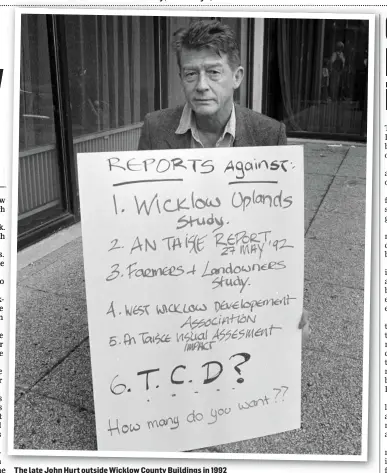 REPORTS Against:
1. Wicklow Uplands
Study.
2. AN TAISE REPORT
27 MAY '92
3. Farmers + Landowners
Study.
4. WEST WICKLOW DEVELOPEMENT
ASSOCIATION
5. An Taisce Visual ASSESMENT
IMPACT
6. T. C. D?
How many do you want??
The late John Hurt outside Wicklow County Buildings in 1992